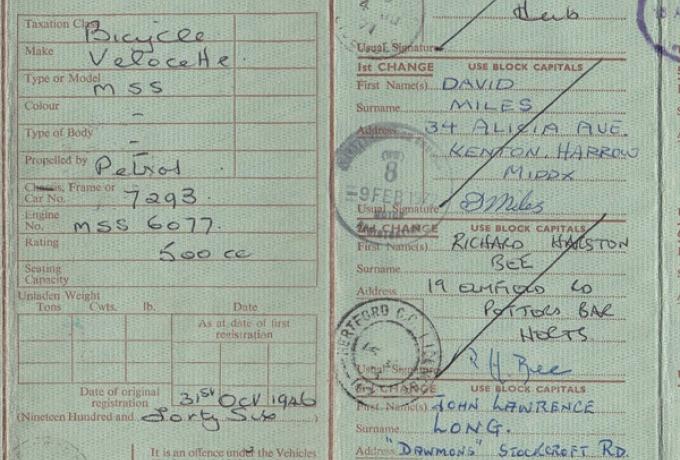 Taxation Class Bicycle
Make Velocette.
Type or Model MSS
Colour –
Type of Body –
Propelled by Petrol
Chassis, Frame or
Car No. 7293.
Engine
No. MSS 6077.
Rating 500 cc
Seating
Capacity
Unladen Weight
Tons Cwts. lb. Date
As at date of first
registration
Date of original
registration 31st Oct 1946
(Nineteen Hundred and Forty Six)
It is an offence under the Vehicles
Herts
Usual Signature
1st CHANGE USE BLOCK CAPITALS
First Name(s) DAVID
Surname MILES
Address 34 ALICIA AVE.
KENTON. HARROW
MIDDX
Usual Signature D Miles
8
9 FEB
2nd CHANGE USE BLOCK CAPITALS
First Name(s) RICHARD HALSTON
Surname BEE
Address 19 ELMFIELD RD
POTTERS BAR
HERTS
HERTFORD C.C.
Usual Signature R. H. Bee
CHANGE USE BLOCK CAPITALS
First Name(s) JOHN LAWRENCE
Surname LONG.
Address "DAWMONS" STOCKCROFT RD.